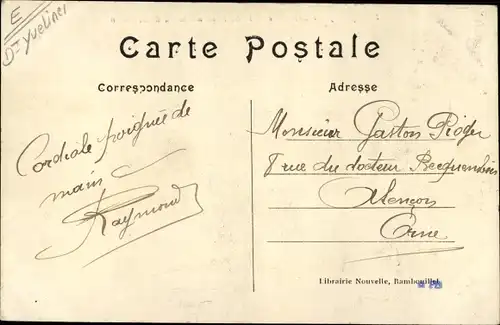 E
Dt Yvelines
Carte Postale
Correspondance
Adresse
Cordiale poignée de
main
Raymond
Monsieur Gaston
7 rue du docteur
Alençon
Orne
Librairie Nouvelle, Rambouillet